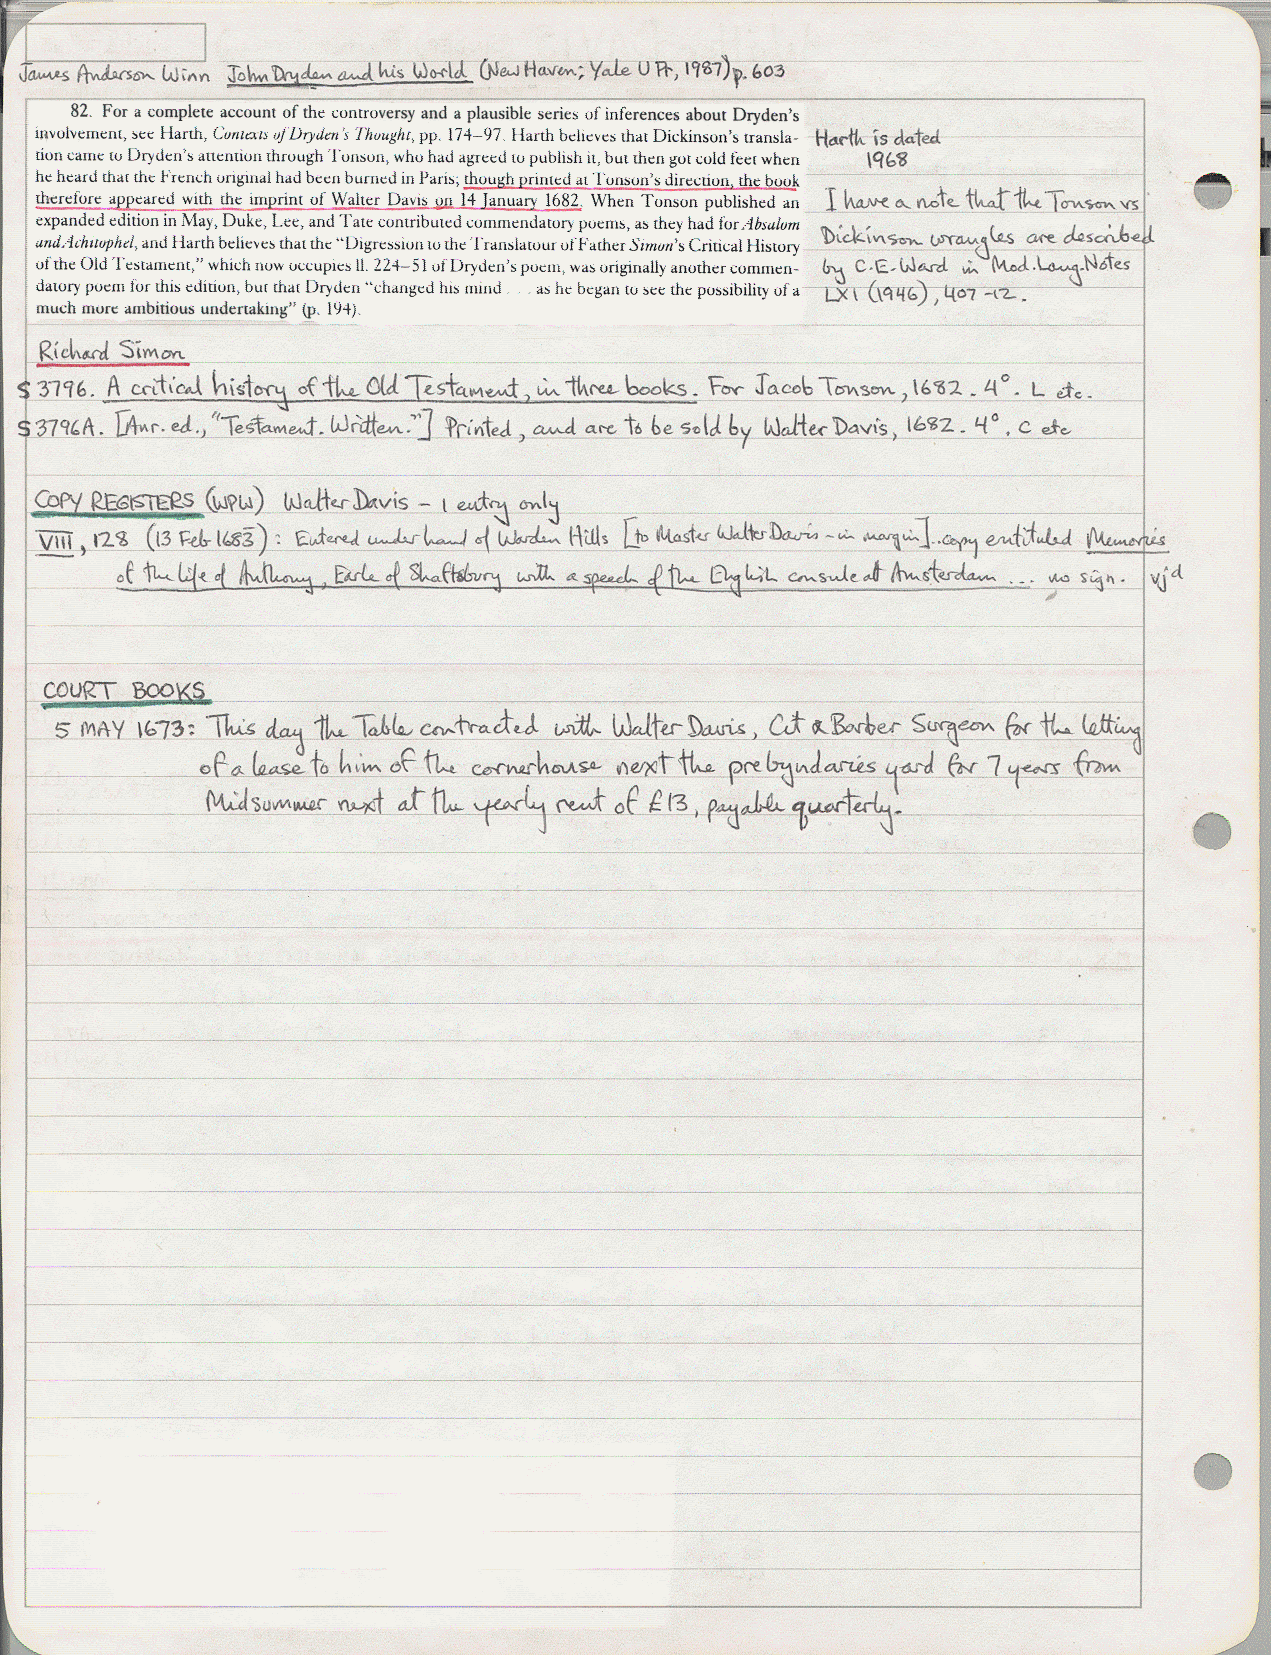 James Anderson Winn John Dryden and his World (New Haven; Yale U Pr, 1987) p. 603
82. For a complete account of the controversy and a plausible series of inferences about Dryden's
involvement, see Harth, Contexts of Dryden's Thought, pp. 174–97. Harth believes that Dickinson's transla-
tion came to Dryden's attention through Tonson, who had agreed to publish it, but then got cold feet when
he heard that the French original had been burned in Paris; though printed at Tonson's direction, the book
therefore appeared with the imprint of Walter Davis on 14 January 1682. When Tonson published an
expanded edition in May, Duke, Lee, and Tate contributed commendatory poems, as they had for Absalom
and Achitophel, and Harth believes that the "Digression to the Translatour of Father Simon's Critical History
of the Old Testament," which now occupies ll. 224–51 of Dryden's poem, was originally another commen-
datory poem for this edition, but that Dryden "changed his mind . . . as he began to see the possibility of a
much more ambitious undertaking" (p. 194).
Harth is dated
1968
I have a note that the Tonson vs
Dickinson wrangles are described
by C.E. Ward in Mod. Lang. Notes
LXI (1946), 407-12.
Richard Simon
S 3796. A critical history of the Old Testament, in three books. For Jacob Tonson, 1682. 4°. L etc.
S 3796A. [Anr. ed., "Testament. Written."] Printed, and are to be sold by Walter Davis, 1682. 4°. C etc
COPY REGISTERS (WPW) Walter Davis – 1 entry only
VIII, 128 (13 Feb 1683): Entered under hand of Warden Hills [to Master Walter Davis – in margin]..copy entituled Memories
of the life of Anthony, Earle of Shaftsbury with a speech of the English consule att Amsterdam ... no sign. vjd
COURT BOOKS
5 MAY 1673: This day the Table contracted with Walter Davis, Cit & Barber Surgeon for the letting
of a lease to him of the cornerhouse next the prebyndaries yard for 7 years from
Midsummer next at the yearly rent of £13, payable quarterly.